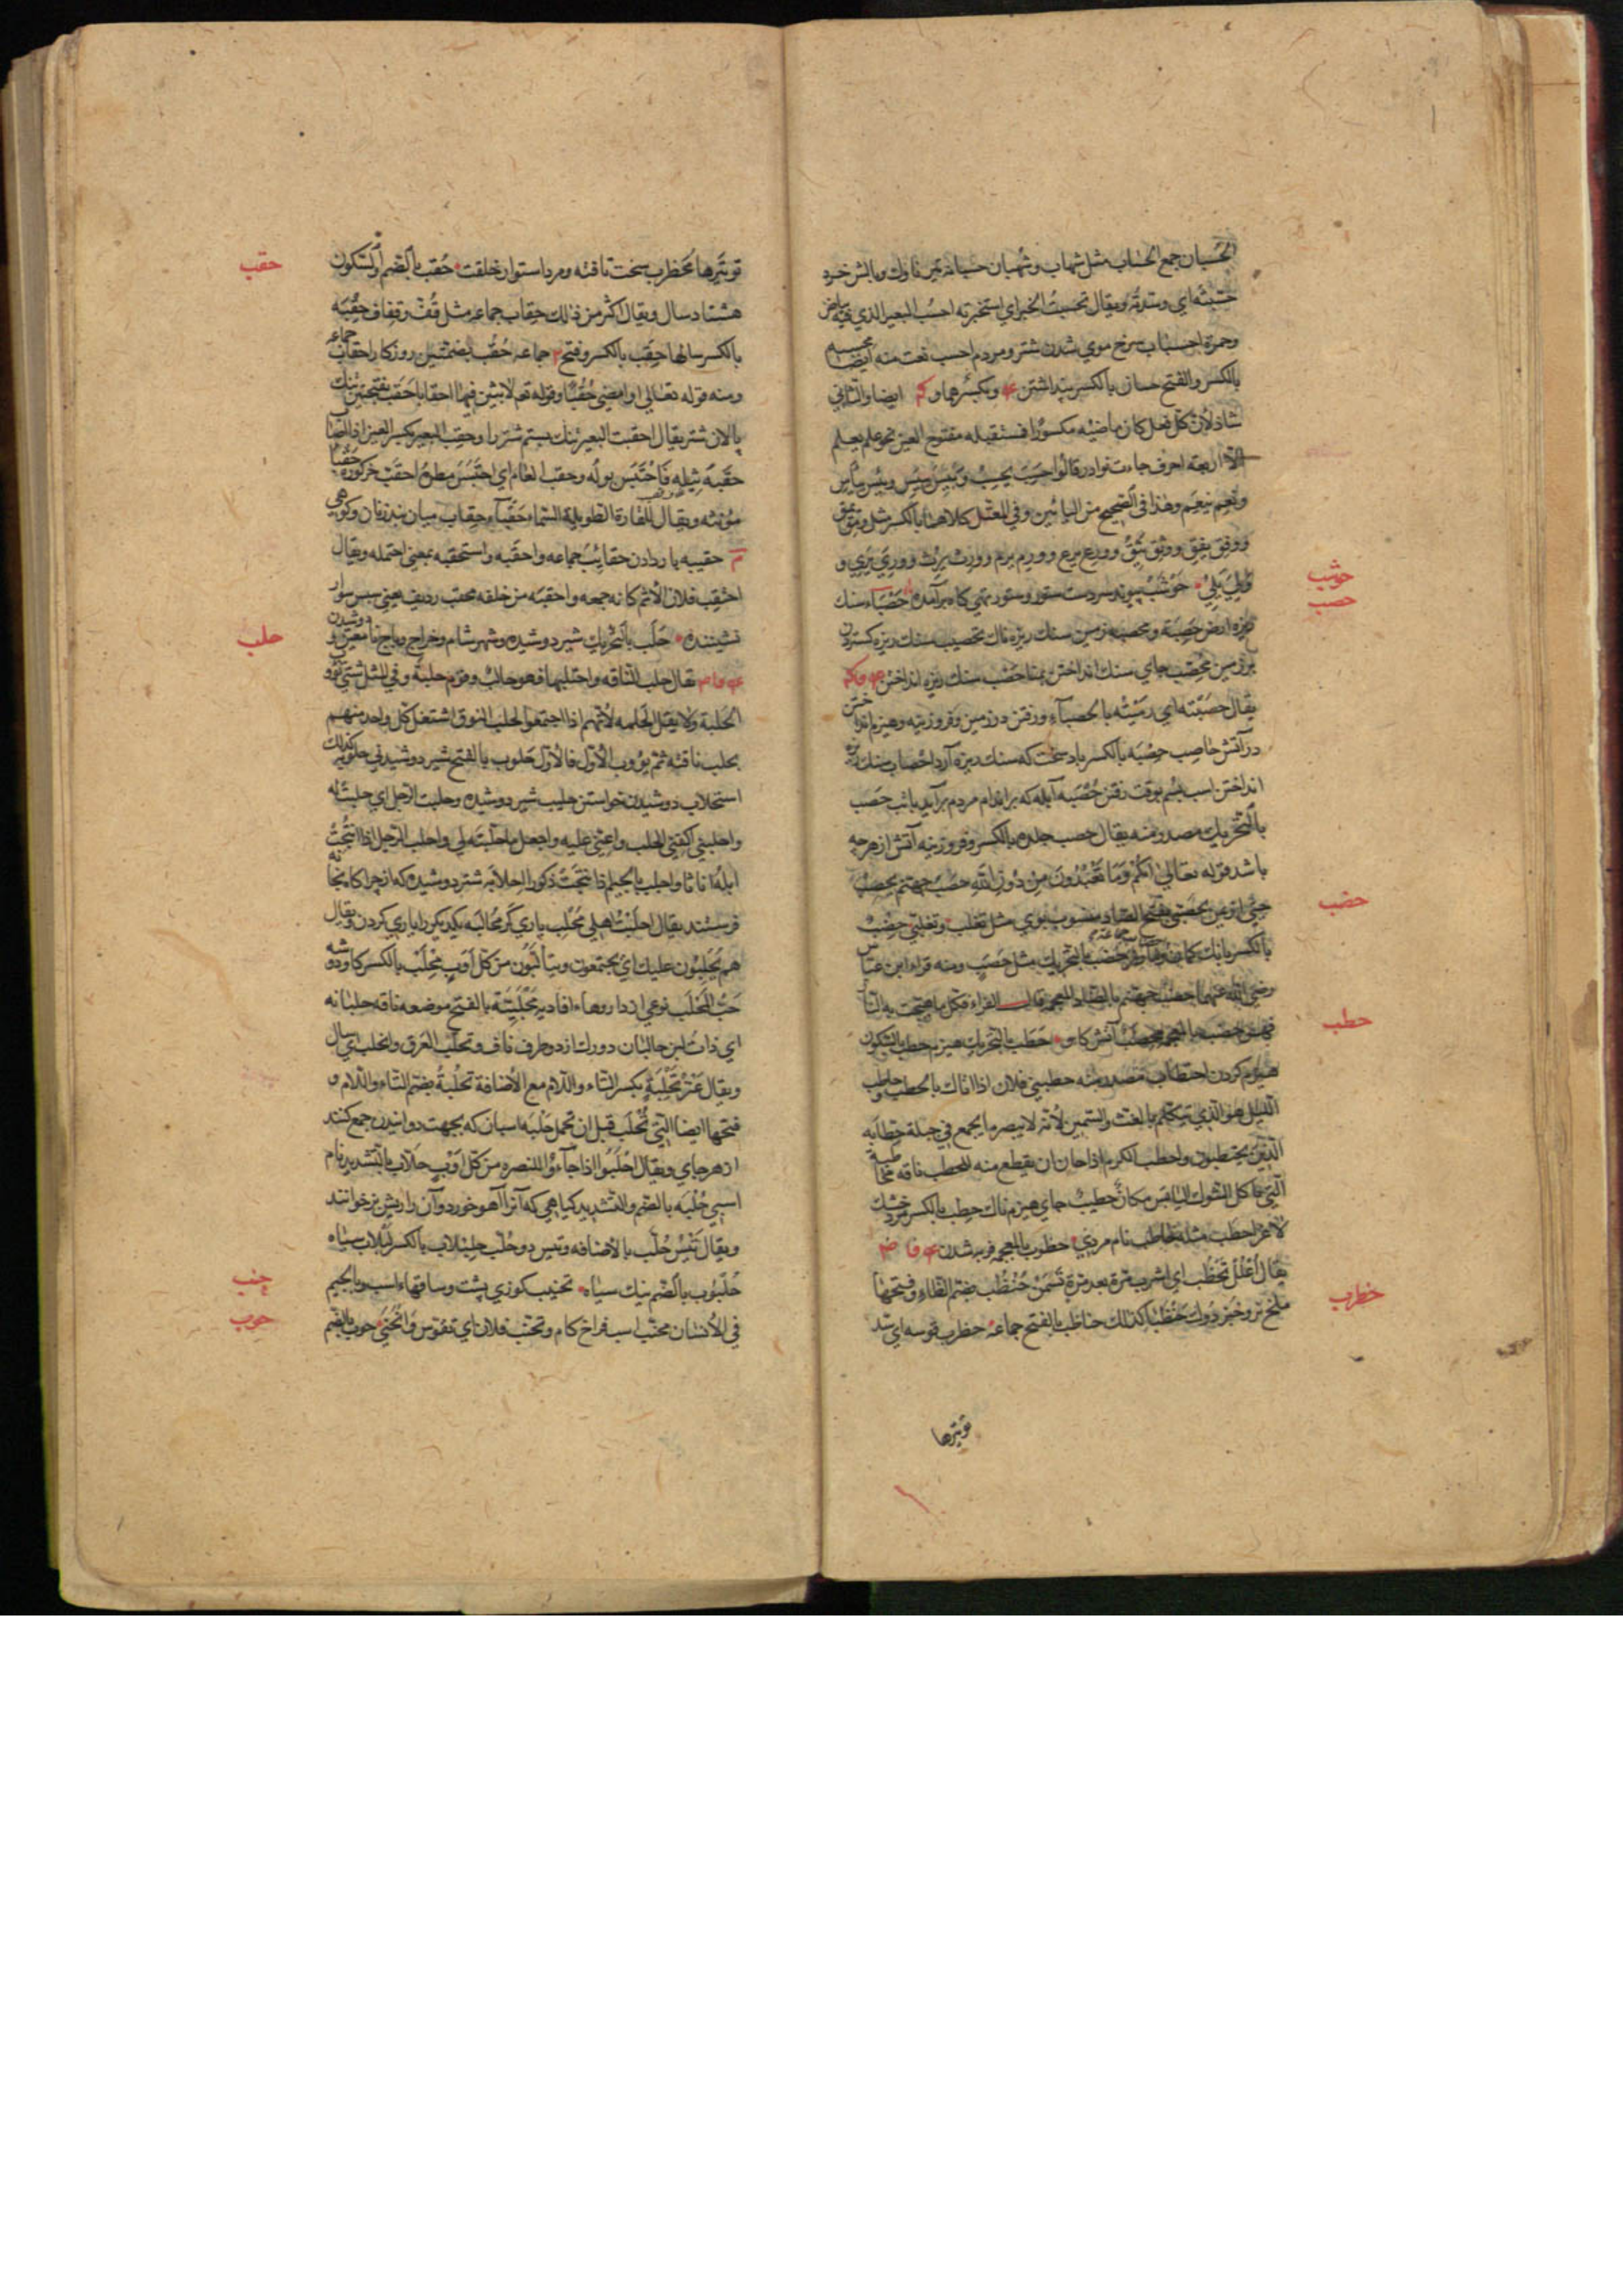 الحسبان جمع الحساب مثل شهاب وشهبان حسبانه تير ناوك وبالش خرد
حسبته اي وسدته ويقال تحسبت الخبر اي استخبرته احسب البعير الذي فيه بياض
وحمرة احسباب سرخ موي شدن شتر ومردم احسب نعت منه ايضا
بالكسر والفتح حسبان بالكسر پنداشتن وبكسرهما و ايضا والثاني
شاذ لان كل فعل كان ماضيه مكسورا فمستقبله مفتوح العين نحو علم يعلم
الا اربعة احرف جاءت نوادر قالوا حسب يحسب ويبس ييبس ويئس ييأس
ونعم ينعم وهذا في الصحيح من البابين وفي المعتل كلاهما بالكسر مثل ومق يمق
ووفق يفق ووثق يثق وورع يرع وورم يرم وورث يرث ووري يري و
ولي يلي حوشب پيوند سردست ستور وستور تهي كاه برآمده حصباء سنك
حوشب
حصب
ريزه ارض حصبة ومحصبة زمين سنك ريزه ناك تحصيب سنك ريزه كستردن
بر زمين محصب جاي سنك انداختن بمنا حصب سنك ريزه انداختن
يقال حصبته اي رميته بالحصباء ورفتن در زمين وفروزينه وهيزم انداختن
در آتش حاصب حصبه بالكسر باد سخت كه سنك ريزه آرد احصاب سنك ريزه
انداختن اسب بسم بوقت رفتن حصبه آبله كه بر اندام مردم برآيد باثب حصب
بالتحريك مصدر منه يقال حصب جلده بالكسر وفروزينه آتش از هر چه
باشد قوله تعالى انكم وما تعبدون من دون الله حصب جهنم يحصب
حيي از يمن يحصبي بفتح الصاد منسوب بوي مثل تغلب وتغلبي حضب
حضب
بالكسر بانك كمان حضب بالتحريك مثل حصب ومنه قراءة ابن عباس
رضي الله عنهما حضب جهنم بالضاد المعجمة قال الفراء فكل ما هيجت به النار
فهو حضب محضب آتش كاو حطب بالتحريك هيزم حطب بالسكون
حطب
هيزم كردن احتطاب مصدر منه حطبني فلان اذا اتاك بالحطب وحاطب
الليل هو الذي يتكلم بالغث والسمين لانه لا يبصر ما يجمع في حبله حطابه
الذين يحتطبون واحطب الكرم اذا حان ان يقطع منه الحطب ناقه محاطبة
التي تاكل الشوك اليابس مكان حطيب جاي هيزم ناك حطب بالكسر مرد خشك
لاغر احطب مثله حاطب نام مردي حظوب بالمعجمه فربه شدن
يقال اعلل تحظب اي اشرب مرة بعد مرة تسمن حنظب بضم الظاء وفتحها
ملخ نر وخبز دوك حنظباء كذلك حناظب بالفتح جماعه حظرب قوسه اي شد
حظرب
توتيرها
توتيرها محظرب سخت تافته ومرد استوار خلقت حقب بالضم والسكون
حقب
هشتاد سال ويقال اكثر من ذلك حقاب جماعه مثل قف وقفاف حقبه
بالكسر سالها حقب بالكسر وفتح جماعه حقب بضمتين روزكار احقاب جماعه
ومنه قوله تعالى او امضي حقبا وقوله تعم لابثين فيها احقابا حقب بفتحتين تنك
پالان شتر يقال احقبت البعير تنك بستم شتر را وحقب البعير بكسر العين اذا اصاب
حقبه ثيله فاحتبس بوله وحقب العام اي احتبس مطره احقب خركوره حقباء
مؤنثه ويقال للقارة الطويلة في السماء حقباء حقاب ميان بند زنان وكوهي
حقيبه باردان حقائب جماعه واحقبه واستحقبه بمعني احتمله ويقال
احتقب فلان الاثم كانه جمعه واحتقبه من خلفه محقب رديف يعني سپس سوار
نشيننده حلب بالتحريك شير دوشيده وشهر شام وخراج وباج نامعين و دوشيدن
حلب
يقال حلب الناقه واحتلبها فهو حالب وقوم حلبة وفي المثل شتى تؤوب
الحلبة ولا يقال الحلمه لانهم اذا اجتمعوا لحلب النوق اشتغل كل واحد منهم
بحلب ناقته ثم يؤوب الاول فالاول حلوب بالفتح شير دوشيدني حلوبه كذلك
استحلاب دوشيدن خواستن حليب شير دوشيده وحلبت الرجل اي حلبت له
واحلبني اكفني الحلب واعني عليه واجعل ما حلبته لي واحلب الرجل اذا انتجت
ابله اناثا واجلب بالجيم اذا نتجت ذكورا احلابه شتر دوشيده كه از چراكاه بخانه
فرستند يقال احلبت اهلي محلب ياري كر محالبه يكديكر را ياري كردن ويقال
هم يحلبون عليك اي يجتمعون ويتألبون من كل اوب محلب بالكسر كاودوشه
حب المحلب نوعي از داروهاء افاديه محلبية بالفتح موضعه ناقه حلبانه
اي ذات لبن حالبان دو رك از دو طرف ناف وتحلب العرق وانحلب اي سال
ويقال عنز تحلبة بكسر التاء واللام مع الاضافة تحلبة بضم التاء واللام و
فتحها ايضا التي تحلب قبل ان تحمل حلبه اسبان كه بجهت دوانيدن جمع كنند
از هر جاي ويقال احلبوا اذا جاءوا للنصره من كل اوب حلاب بالتشديد نام
اسبي حلبه بالضم والتشديد كياهي كه آنرا آهو خورد وآن را ريش بز خوانند
ويقال تيس حلب بالاضافه وتيس ذو حلب حلبلاب بالكسر لبلاب سياه
حلبوب بالضم نيك سياه تحنيب كوزي پشت وساقهاء اسب وبالجيم
حنب
في الانسان محنب اسب فراخ كام وتحنب فلان اي تقوس وانحنى حوب بالضم
حوب